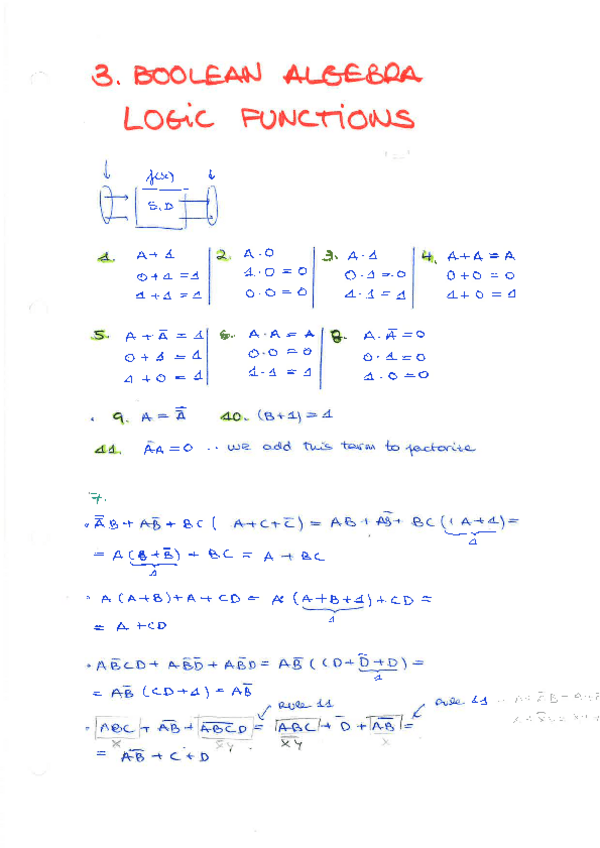 3. BOOLEAN ALGEBRA
LOGIC FUNCTIONS
f(x)
S.D
1. A+1
0+1=1
1+1=1
2. A·0
1·0=0
0·0=0
3. A·1
0·1=0
1·1=1
4. A+A=A
0+0=0
1+0=1
5. A+Ā=1
0+1=1
1+0=1
6. A·A=A
0·0=0
1·1=1
8. A·Ā=0
0·1=0
1·0=0
9. A=A̿
10. (B+1)=1
11. ĀA=0 .. we add this term to factorite
7.
ĀB+AB̄+BC(A+C+C̄)=AB+AB̄+BC(A+1)=
1
=A(B+B̄)+BC=A+BC
1
A(A+B)+A+CD=A(A+B+1)+CD=
1
=A+CD
AB̄CD+AB̄D̄+AB̄D=AB̄(CD+D̄+D)=
1
=AB̄(CD+1)=AB̄
Rule 11
Rule 11
ABC+AB̅+ABCD=ABC+D̄+AB̅=
X
=AB̅+C+D